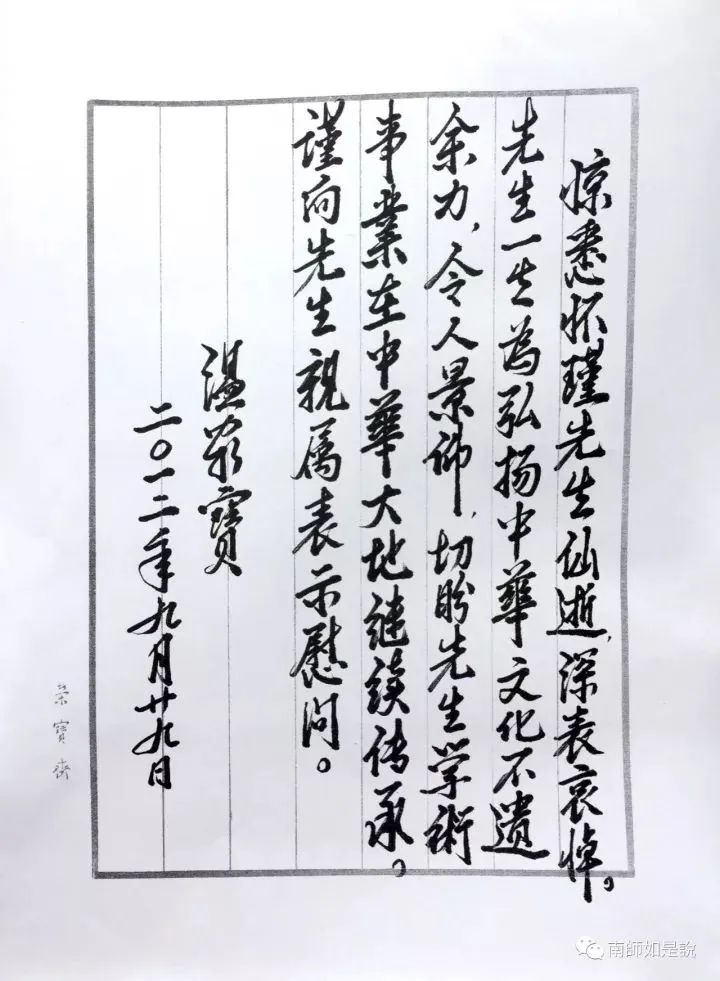 惊悉怀瑾先生仙逝，深表哀悼。
先生一生为弘扬中華文化不遗
余力，令人景仰，切盼先生学術
事業在中華大地继续传承。
谨向先生親属表示慰问。
温家寶
二〇一二年九月廿九日
荣寶斋
南師如是說